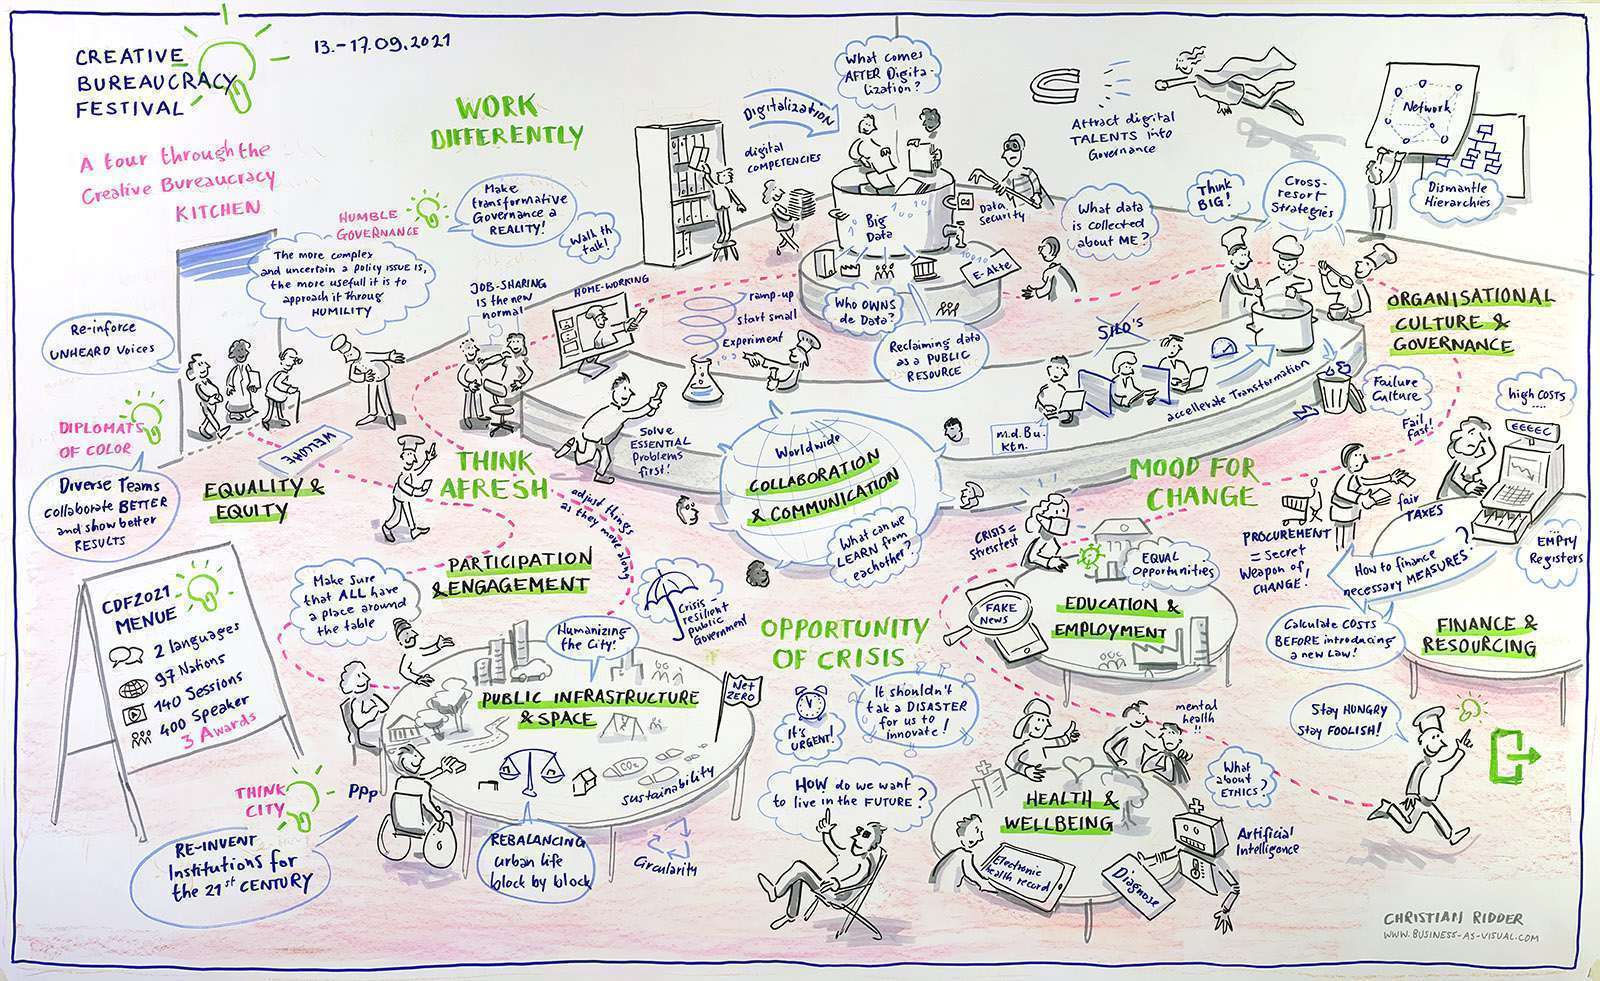 CREATIVE
BUREAUCRACY
FESTIVAL
13.–17.09.2021
A tour through the
Creative Bureaucracy
KITCHEN
WORK
DIFFERENTLY
HUMBLE
GOVERNANCE
Make
transformative
Governance a
REALITY!
Walk th
talk!
The more complex
and uncertain a policy issue is,
the more usefull it is to
approach it throug
HUMILITY
Re-inforce
UNHEARD Voices
DIPLOMATS
OF COLOR
Diverse Teams
collaborate BETTER
and show better
RESULTS
WELCOME
EQUALITY &
EQUITY
JOB-SHARING
is the new
normal
HOME-WORKING
Digitalization
digital
COMPETENCIES
What comes
AFTER Digita-
lization?
Big
Data
Data
Security
E-Akte
Who OWNS
de Data?
Reclaiming data
as a PUBLIC
RESOURCE
What data
is collected
about ME?
Attract digital
TALENTS into
Governance
Network
Dismantle
Hierarchies
Think
BIG!
Cross-
resort
Strategies
ORGANISATIONAL
CULTURE &
GOVERNANCE
ramp-up
start small
Experiment
SILO'S
accellerate Transformation
m.d.Bu.
Ktn.
Failure
Culture
Fail
fast!
Solve
ESSENTIAL
Problems
first!
THINK
AFRESH
adjust things
as they move along
Worldwide
COLLABORATION
& COMMUNICATION
What can we
LEARN from
eachother?
MOOD FOR
CHANGE
CRISIS =
Stresstest
high COSTS
....
EEEEC
fair
TAXES
PROCUREMENT
= Secret
Weapon of
CHANGE!
How to finance
necessary MEASURES?
EMPty
Registers
Calculate COSTS
BEFORE introducing
a new Law!
FINANCE &
RESOURCING
EQUAL
Opportunities
FAKE
News
EDUCATION &
EMPLOYMENT
PARTICIPATION
& ENGAGEMENT
Make Sure
that ALL have
a place around
the table
Crisis-
resilient
public
Government
OPPORTUNITY
OF CRISIS
Humanizing
the City!
PUBLIC INFRASTRUCTURE
& SPACE
Net
ZERO
CO₂
sustainability
Circularity
REBALANCING
urban life
block by block
CDF2021
MENUE
2 languages
97 Nations
140 Sessions
400 Speaker
3 Awards
THINK
CITY
PPP
RE-INVENT
Institutions for
the 21st CENTURY
It's
URGENT!
It shouldn't
tak a DISASTER
for us to
innovate!
HOW do we want
to live in the FUTURE?
mental
health
!!
HEALTH &
WELLBEING
Electronic
health record
Diagnose
What
about
ETHICS?
Artificial
Intelligence
Stay HUNGRY
Stay FOOLISH!
CHRISTIAN RIDDER
WWW.BUSINESS-AS-VISUAL.COM